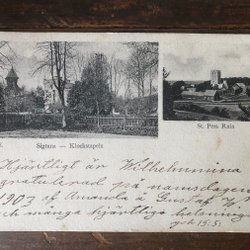 Sigtuna — Klockstapeln
St. Pers Ruin
Hjärtligt är Wilhelmina
gratulerad på namnsdagen
1903 af Amanda & Gustaf
många hjärtliga helsningar